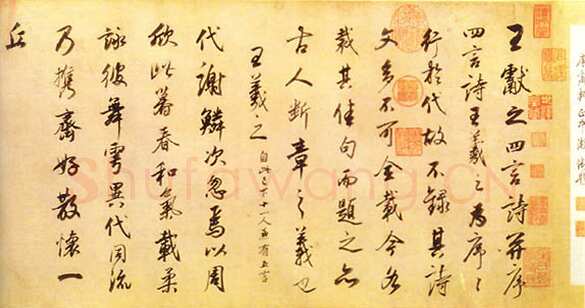 王獻之四言詩并序
四言詩王羲之為序〻
行於代故不錄其詩
文多不可全載今各
裁其佳句而題之亦
古人斷章之義也
王羲之 自此已下十一人並有五言
代謝鱗次忽焉以周
欣此暮春和氣載柔
詠彼舞雩異代同流
乃攜齊好散懷一
丘
Shufawang.CN